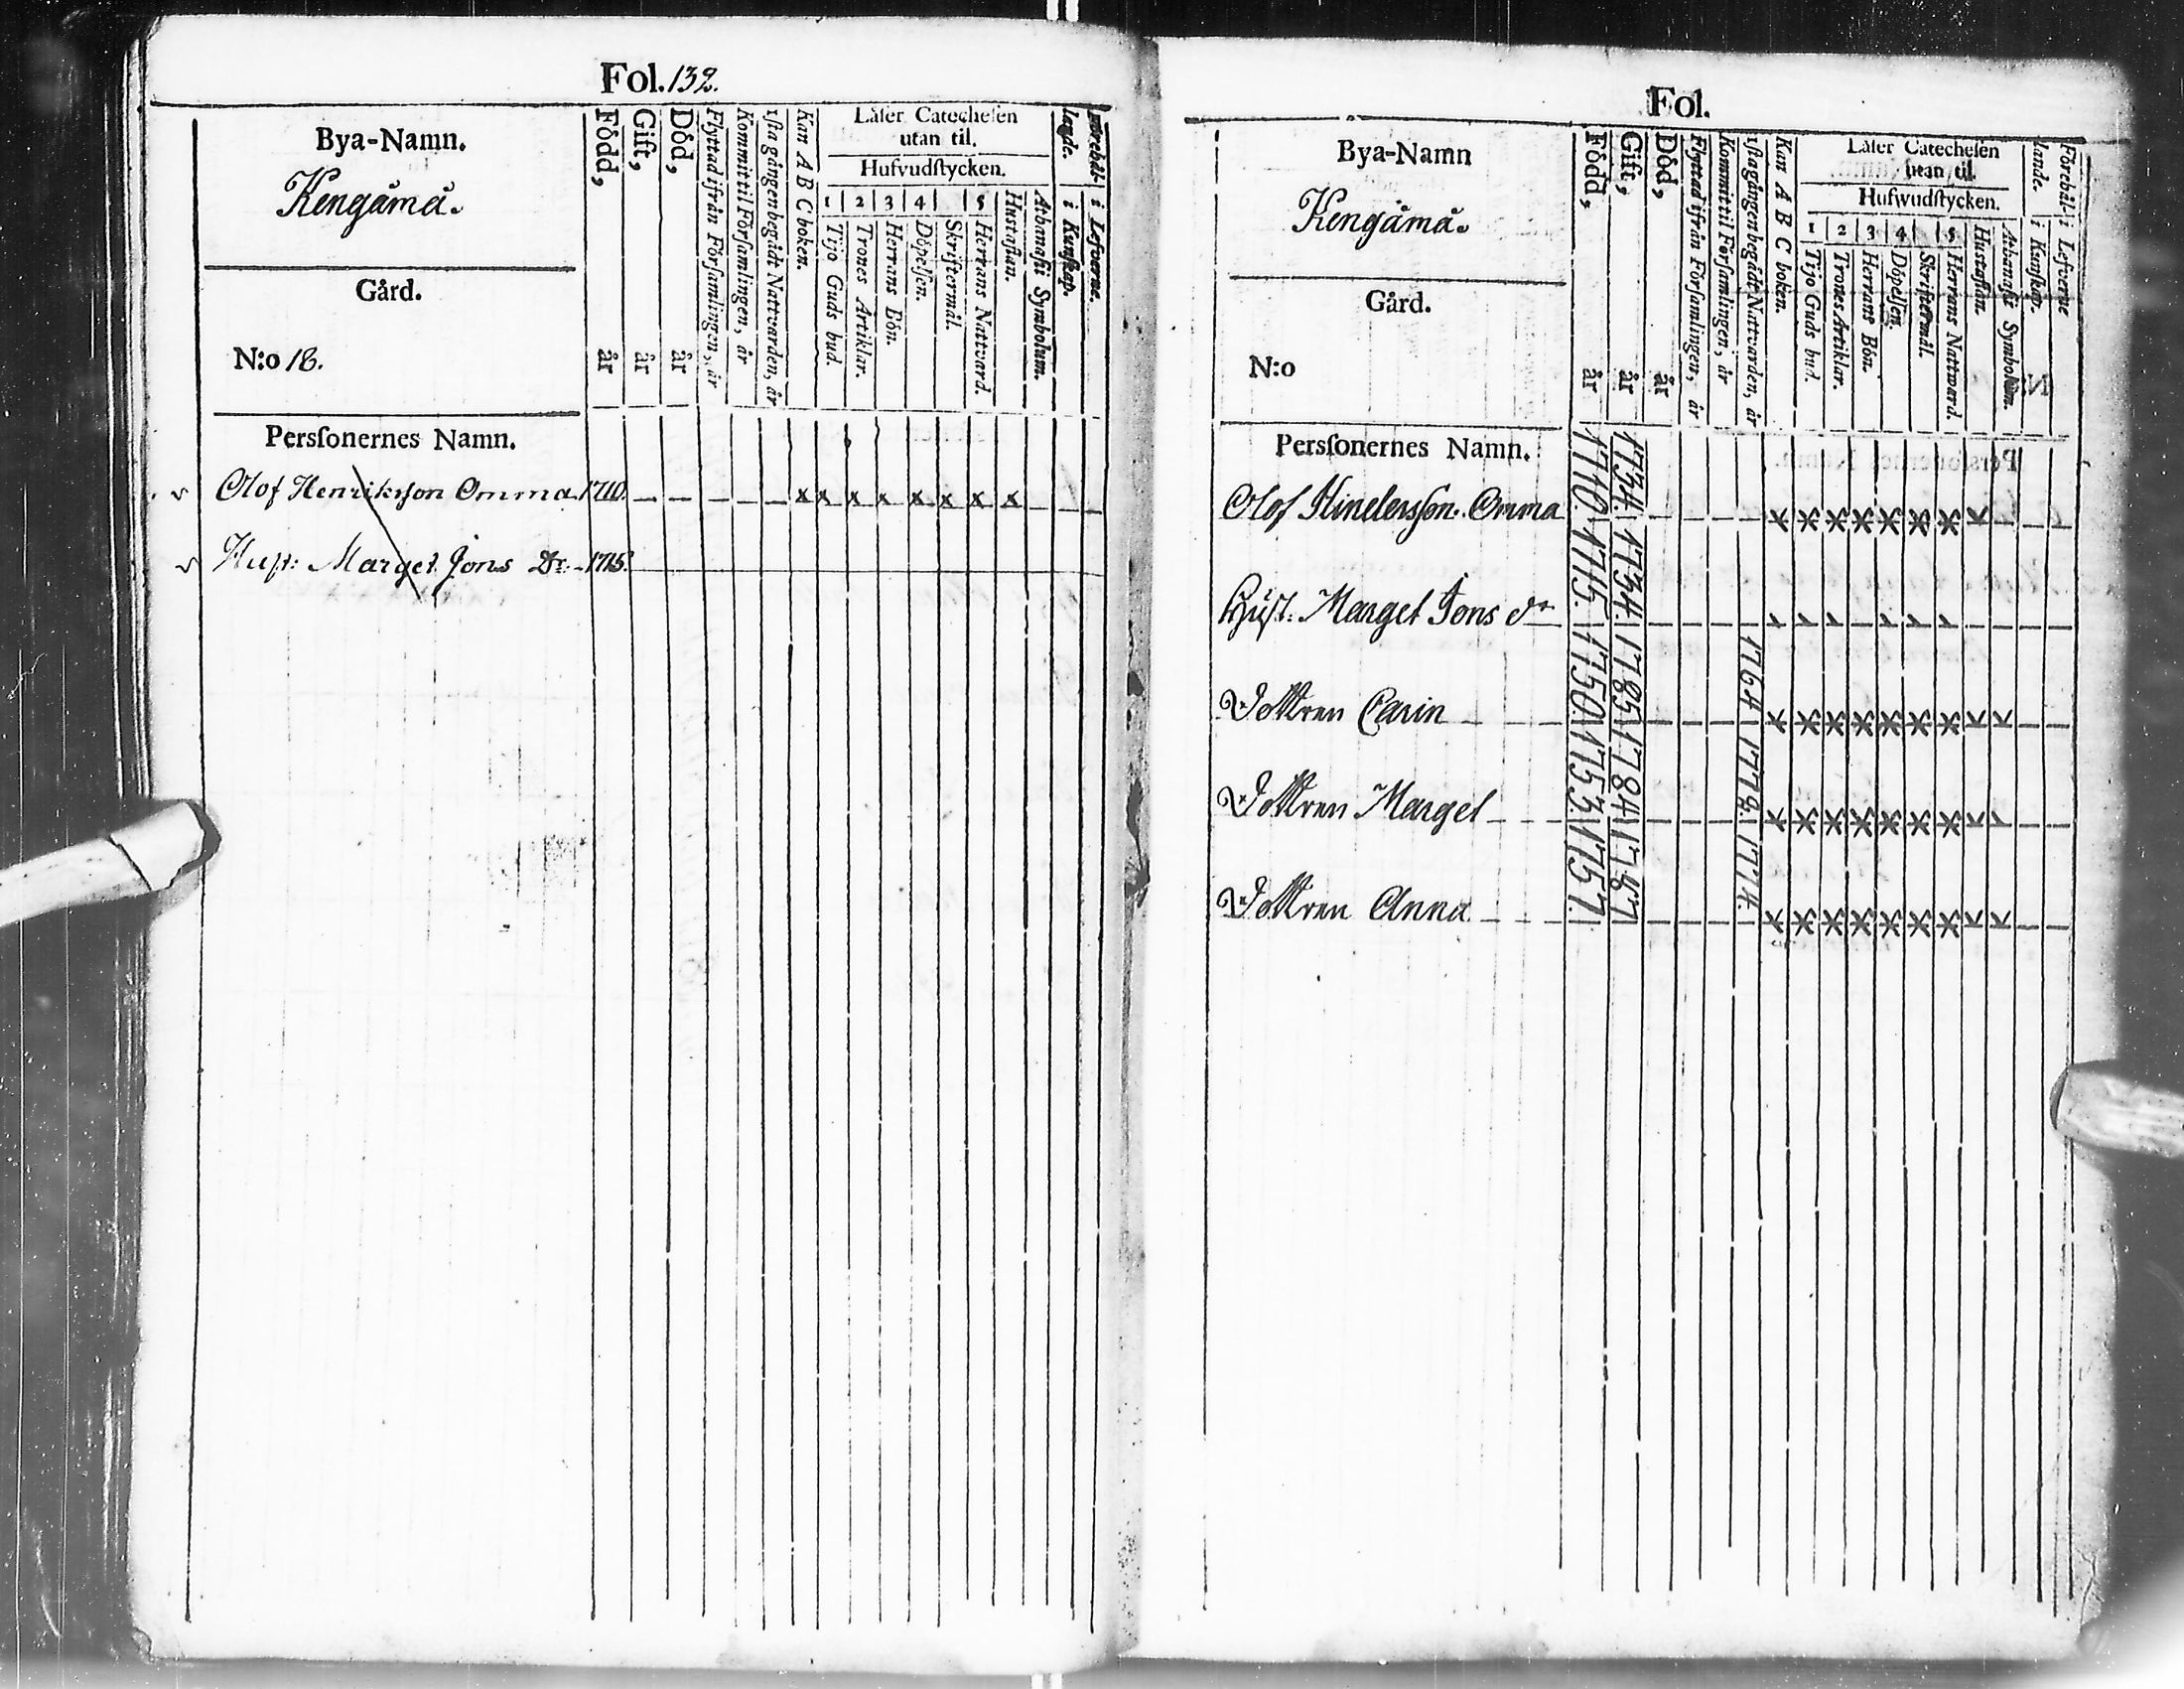 Fol. 132.
Bya-Namn.
Kengämä.
Gård.
N:o 18.
Född, år
Gift, år
Död, år
Flyttad ifrån Församlingen, år
Kommit til Församlingen, år
1sta gången begådt Nattvarden, år
Kan A B C boken.
Läser Catechesen
utan til.
Hufvudstycken.
1 2 3 4 5
Tijo Guds bud.
Trones Artiklar.
Herrans Bön.
Döpelsen.
Skriftermål.
Herrans Nattvard.
Hustaflan.
Athanasii Symbolum.
Förehål-
lande.
i Kunskap.
i Lefverne.
Persſonernes Namn.
Olof Henriksſon Omma 1710. — — — — — x x x x x x x x
Hust: Marget Jons Dr. - 1715.
Fol.
Bya-Namn
Kengämä.
Gård.
N:o
Född, år
Gift, år
Död, år
Flyttad ifrån Församlingen, år
Kommit til Församlingen, år
1sta gången begådt Nattvarden, år
Kan A B C boken.
Läser Catechesen
utan til.
Hufwudstycken.
1 2 3 4 5
Tijo Guds bud.
Trones Artiklar.
Herrans Bön.
Döpelsen.
Skriftermål.
Herrans Nattward.
Hustaflan.
Athanasii Symbolum.
Förehål-
lande.
i Kunskap.
i Lefverne
Persſonernes Namn.
Olof Omma 1710. 1734.
Hust. Marget Jons dr 1715. 1734.
Dottren Carin 1750. 1785 1764
Dottren Marget 1753. 1784 1772.
Dottren Anna 1757. 1787 1774.